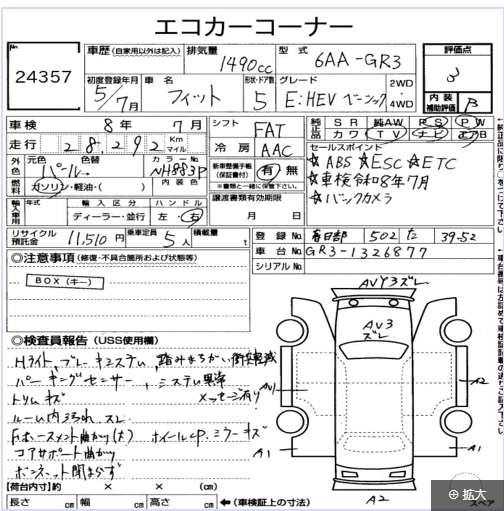 エコカーコーナー
No
24357
車歴(自家用以外は記入) 排気量 1490cc 型式 6AA-GR3
評価点 3
初度登録年月 5/7月 車名 フィット 形状・ドア数 5 グレード E:HEV ベーシック 2WD・4WD
内装補助評価 B
車検 8年7月 シフト FAT 純正品 SR 純AW PS PW
走行 28,292 Km マイル 冷房 AAC カワ TV ナビ エアB
外色 元色 パール 色替 カラーNo NH883P 内装色
新車整備手帳(保証書付) 有・無
※書類と一緒に保管下さい。
セールスポイント
☆ABS ☆ESC ☆ETC
☆車検令和8年7月
☆バックカメラ
燃料 ガソリン・軽油・( )
輸入車用 年式 輸入区分 ディーラー・並行 ハンドル 左・右
譲渡書類有効期限 月 日
リサイクル預託金 11,510円 乗車定員 5人 積載量 t
登録No. 春日部 502 た 39-52
車台No. GR3-1326877
シリアルNo.
◎注意事項(修復・不具合箇所および状態等)
BOX(キー)
◎検査員報告(USS使用欄)
Hライト、ブレーキシステム、踏みまちがい衝突軽減
パーキングセンサー、システム異常
メッセージ有り
トリムキズ
ルーム内汚れ スレ
F.ホースメント曲がり(大) ホイールCP、ミラーキズ
コアサポート曲がり
ボンネット閉まらず
AVY3ズレ
AV3
ズレ
AV1
A2
A1
A1
A2
スペア
【荷台内寸】約 × × (cm)
長さ cm 幅 cm 高さ cm ←(車検証上の寸法)
拡大